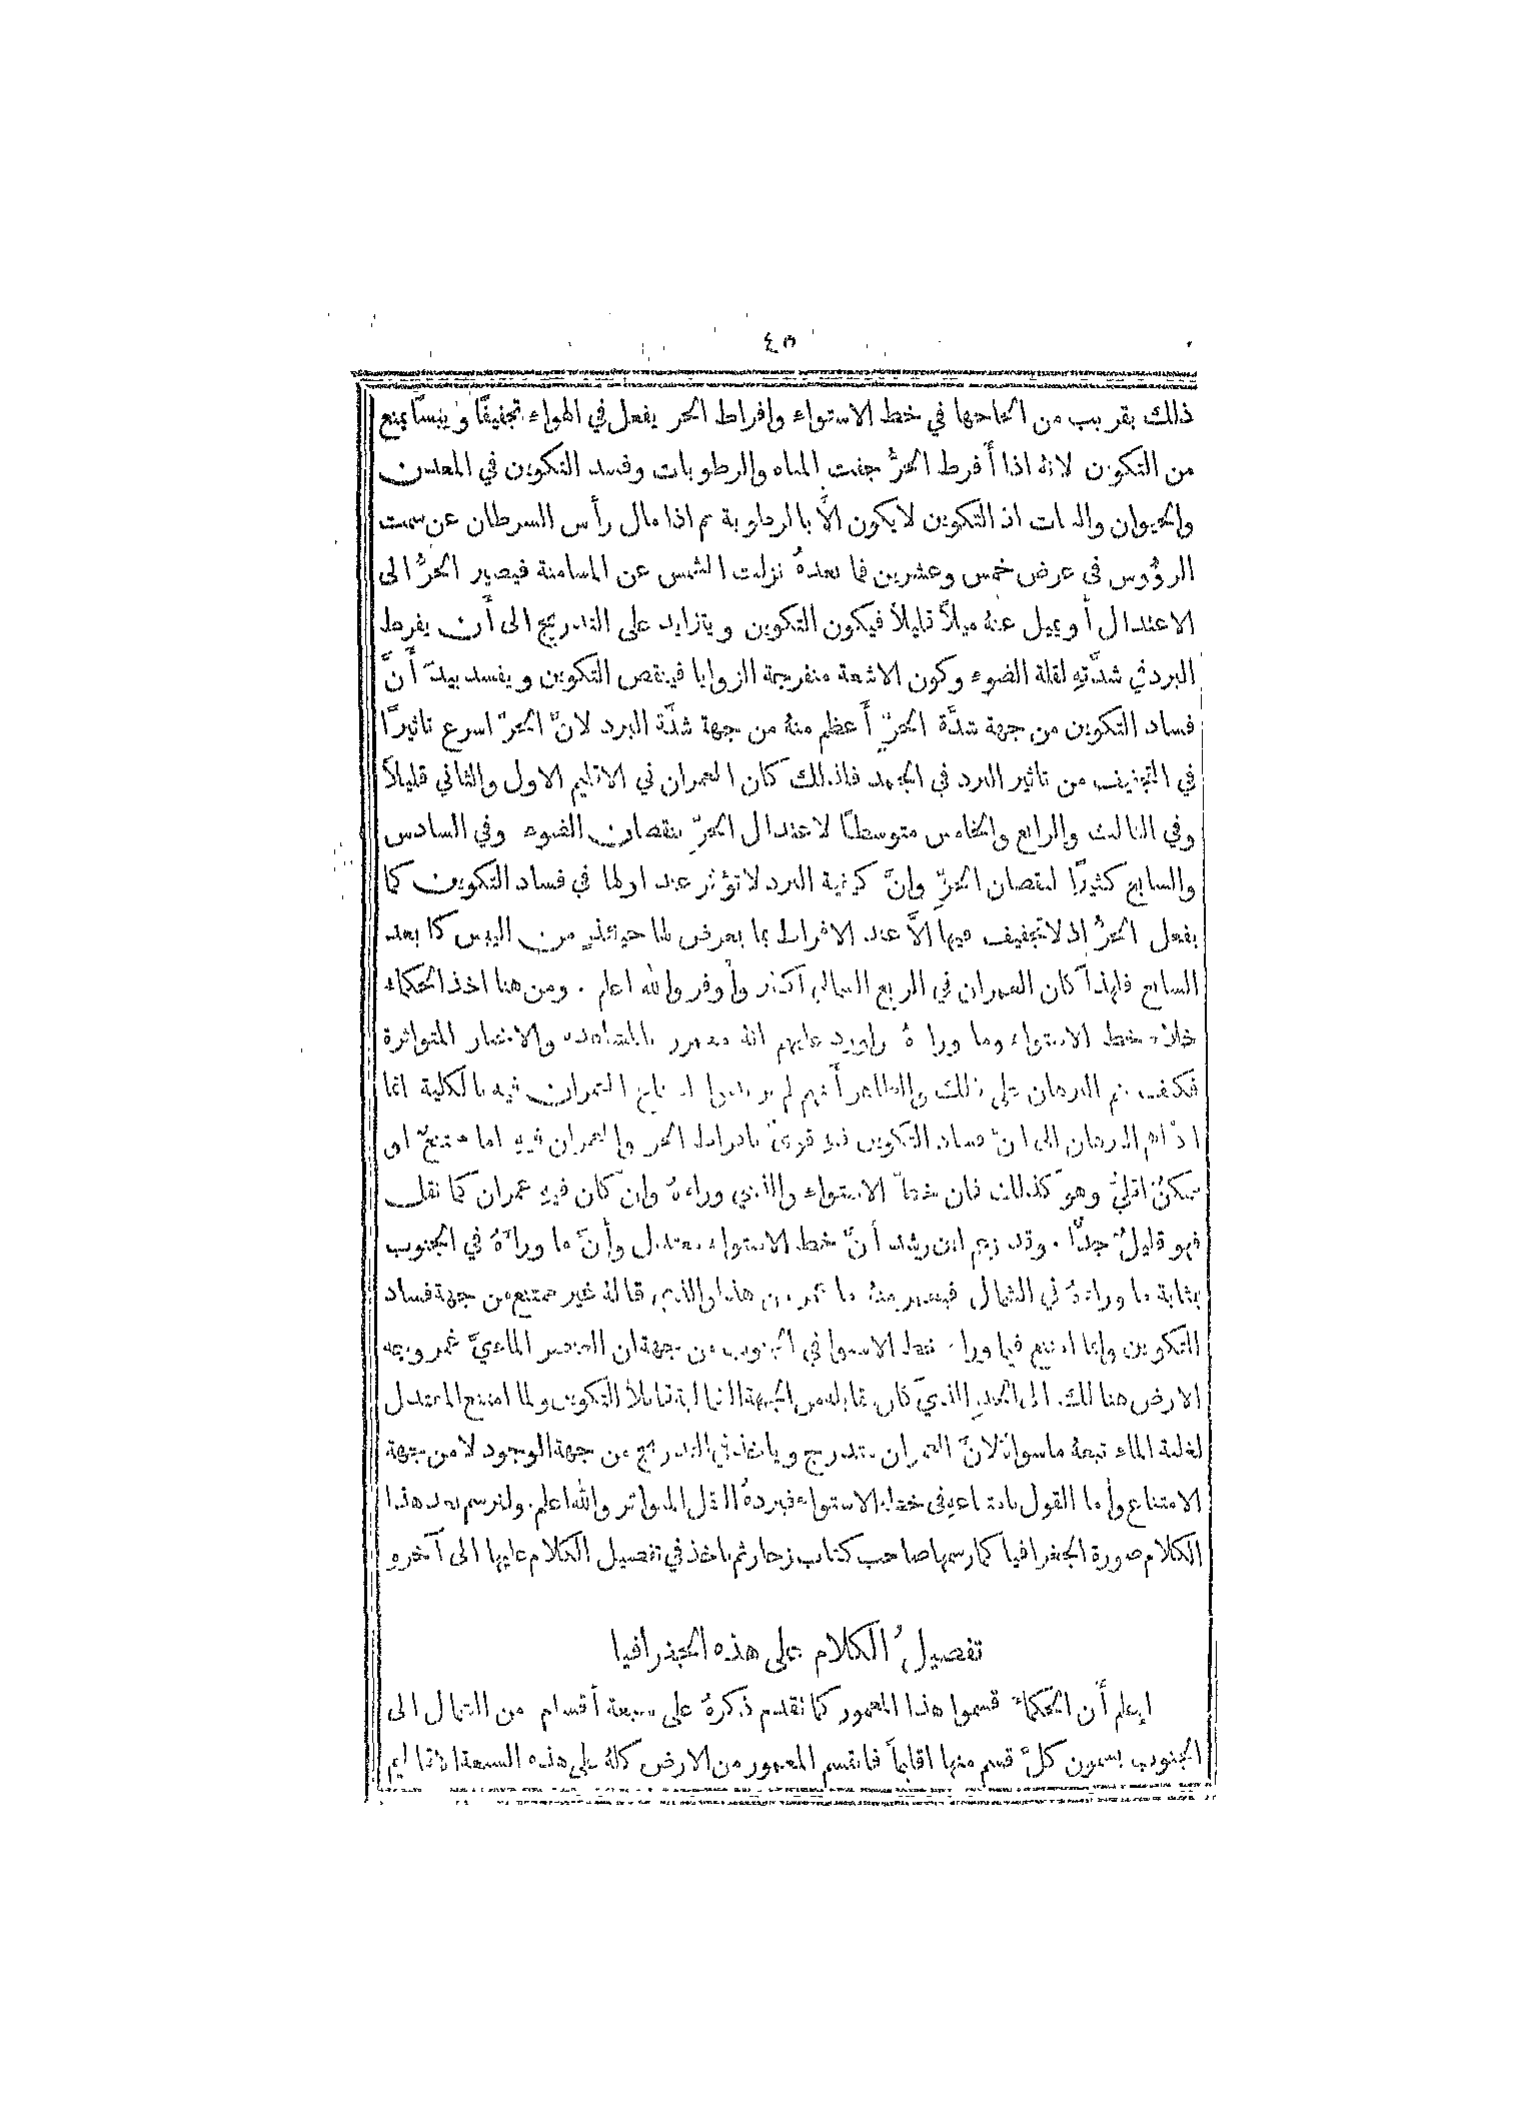 ٤٥
ذلك بقريب من الحاحها في خط الاستواء وافراط الحر يفعل في الهواء تجفيفًا ويبسًا يمنع
من التكوين لانهُ اذا أَفرط الحرُّ جفت المياه والرطوبات وفسد التكوين في المعدن
والحيوان والنبات اذ التكوين لا يكون الَّا بالرطوبة ثم اذا مال رأس السرطان عن سمت
الرؤُوس في عرض خمس وعشرين فما بعدهُ نزلت الشمس عن المسامتة فيصير الحرُّ الى
الاعتدال أَو يميل عنهُ ميلاً قليلاً فيكون التكوين ويتزايد على التدريج الى أَن يفرط
البرد في شدَّتهِ لقلة الضوء وكون الاشعة منفرجة الزوايا فينقص التكوين ويفسد بيدَ أَنَّ
فساد التكوين من جهة شدَّة الحرّ أَعظم منهُ من جهة شدَّة البرد لانَّ الحرّ اسرع تاثيرًا
في التجفيف من تاثير البرد في الجمد فلذلك كان العمران في الاقليم الاول والثاني قليلاً
وفي الثالث والرابع والخامس متوسطًا لاعتدال الحرّ بنقصان الضوء وفي السادس
والسابع كثيرًا لنقصان الحرِّ وانَّ كيفية البرد لا تؤثر عند اولها في فساد التكوين كما
يفعل الحرُّ اذ لا تجفيف فيها الَّا عند الافراط بما يعرض لها حينئذٍ من اليبس كما بعد
السابع فلهذا كان العمران في الربع الشمالي اكثر وأَوفر والله اعلم . ومن هنا اخذ الحكماء
خلاء خط الاستواء وما وراءهُ واورد عليهم انهُ معمور بالمشاهدة والاخبار المتواترة
فكيف يتم البرهان على ذلك والظاهر أَنهم لم يريدوا امتناع العمران فيهِ بالكلية انما
ادَّاهم البرهان الى انَّ فساد التكوين فيهِ قويٌّ بافراط الحر والعمران فيهِ اما ممتنعٌ او
ممكنٌ اقليٌّ وهو كذلك فان خطَّ الاستواء والذي وراءهُ وان كان فيهِ عمران كما نقل
فهو قليلٌ جدًّا . وقد زعم ابن رشد أَنَّ خط الاستواء معتدل وأَنَّ ما وراءَهُ في الجنوب
بمثابة ما وراءهُ في الشمال فيعمر منهُ ما عمر من هذا والذي قالهُ غير ممتنع من جهة فساد
التكوين وانما امتنع فيما وراء خط الاستوا في الجنوب من جهة ان العنصر المائيَّ غمر وجه
الارض هنالك الى الحد الذي كان مقابله من الجهة الشمالية قابلاً للتكوين ولما امتنع المعتدل
لغلبة الماء تبعهُ ما سواهُ لانَّ العمران متدرج وياخذ في التدريج من جهة الوجود لا من جهة
الامتناع وأَما القول بامتناعهِ في خط الاستواء فيردهُ النقل المتواتر والله اعلم . ولنرسم بعد هذا
الكلام صورة الجغرافيا كما رسمها صاحب كتاب زجار ثم ناخذ في تفصيل الكلام عليها الى آخرو
تفصيلُ الكلام على هذه الجغرافيا
إعلم أَن الحكماءَ قسموا هذا المعمور كما تقدم ذكرهُ على سبعة أَقسام من الشمال الى
الجنوب يسمون كلَّ قسم منها اقليماً فانقسم المعمور من الارض كلهُ على هذه السبعة الاقاليم